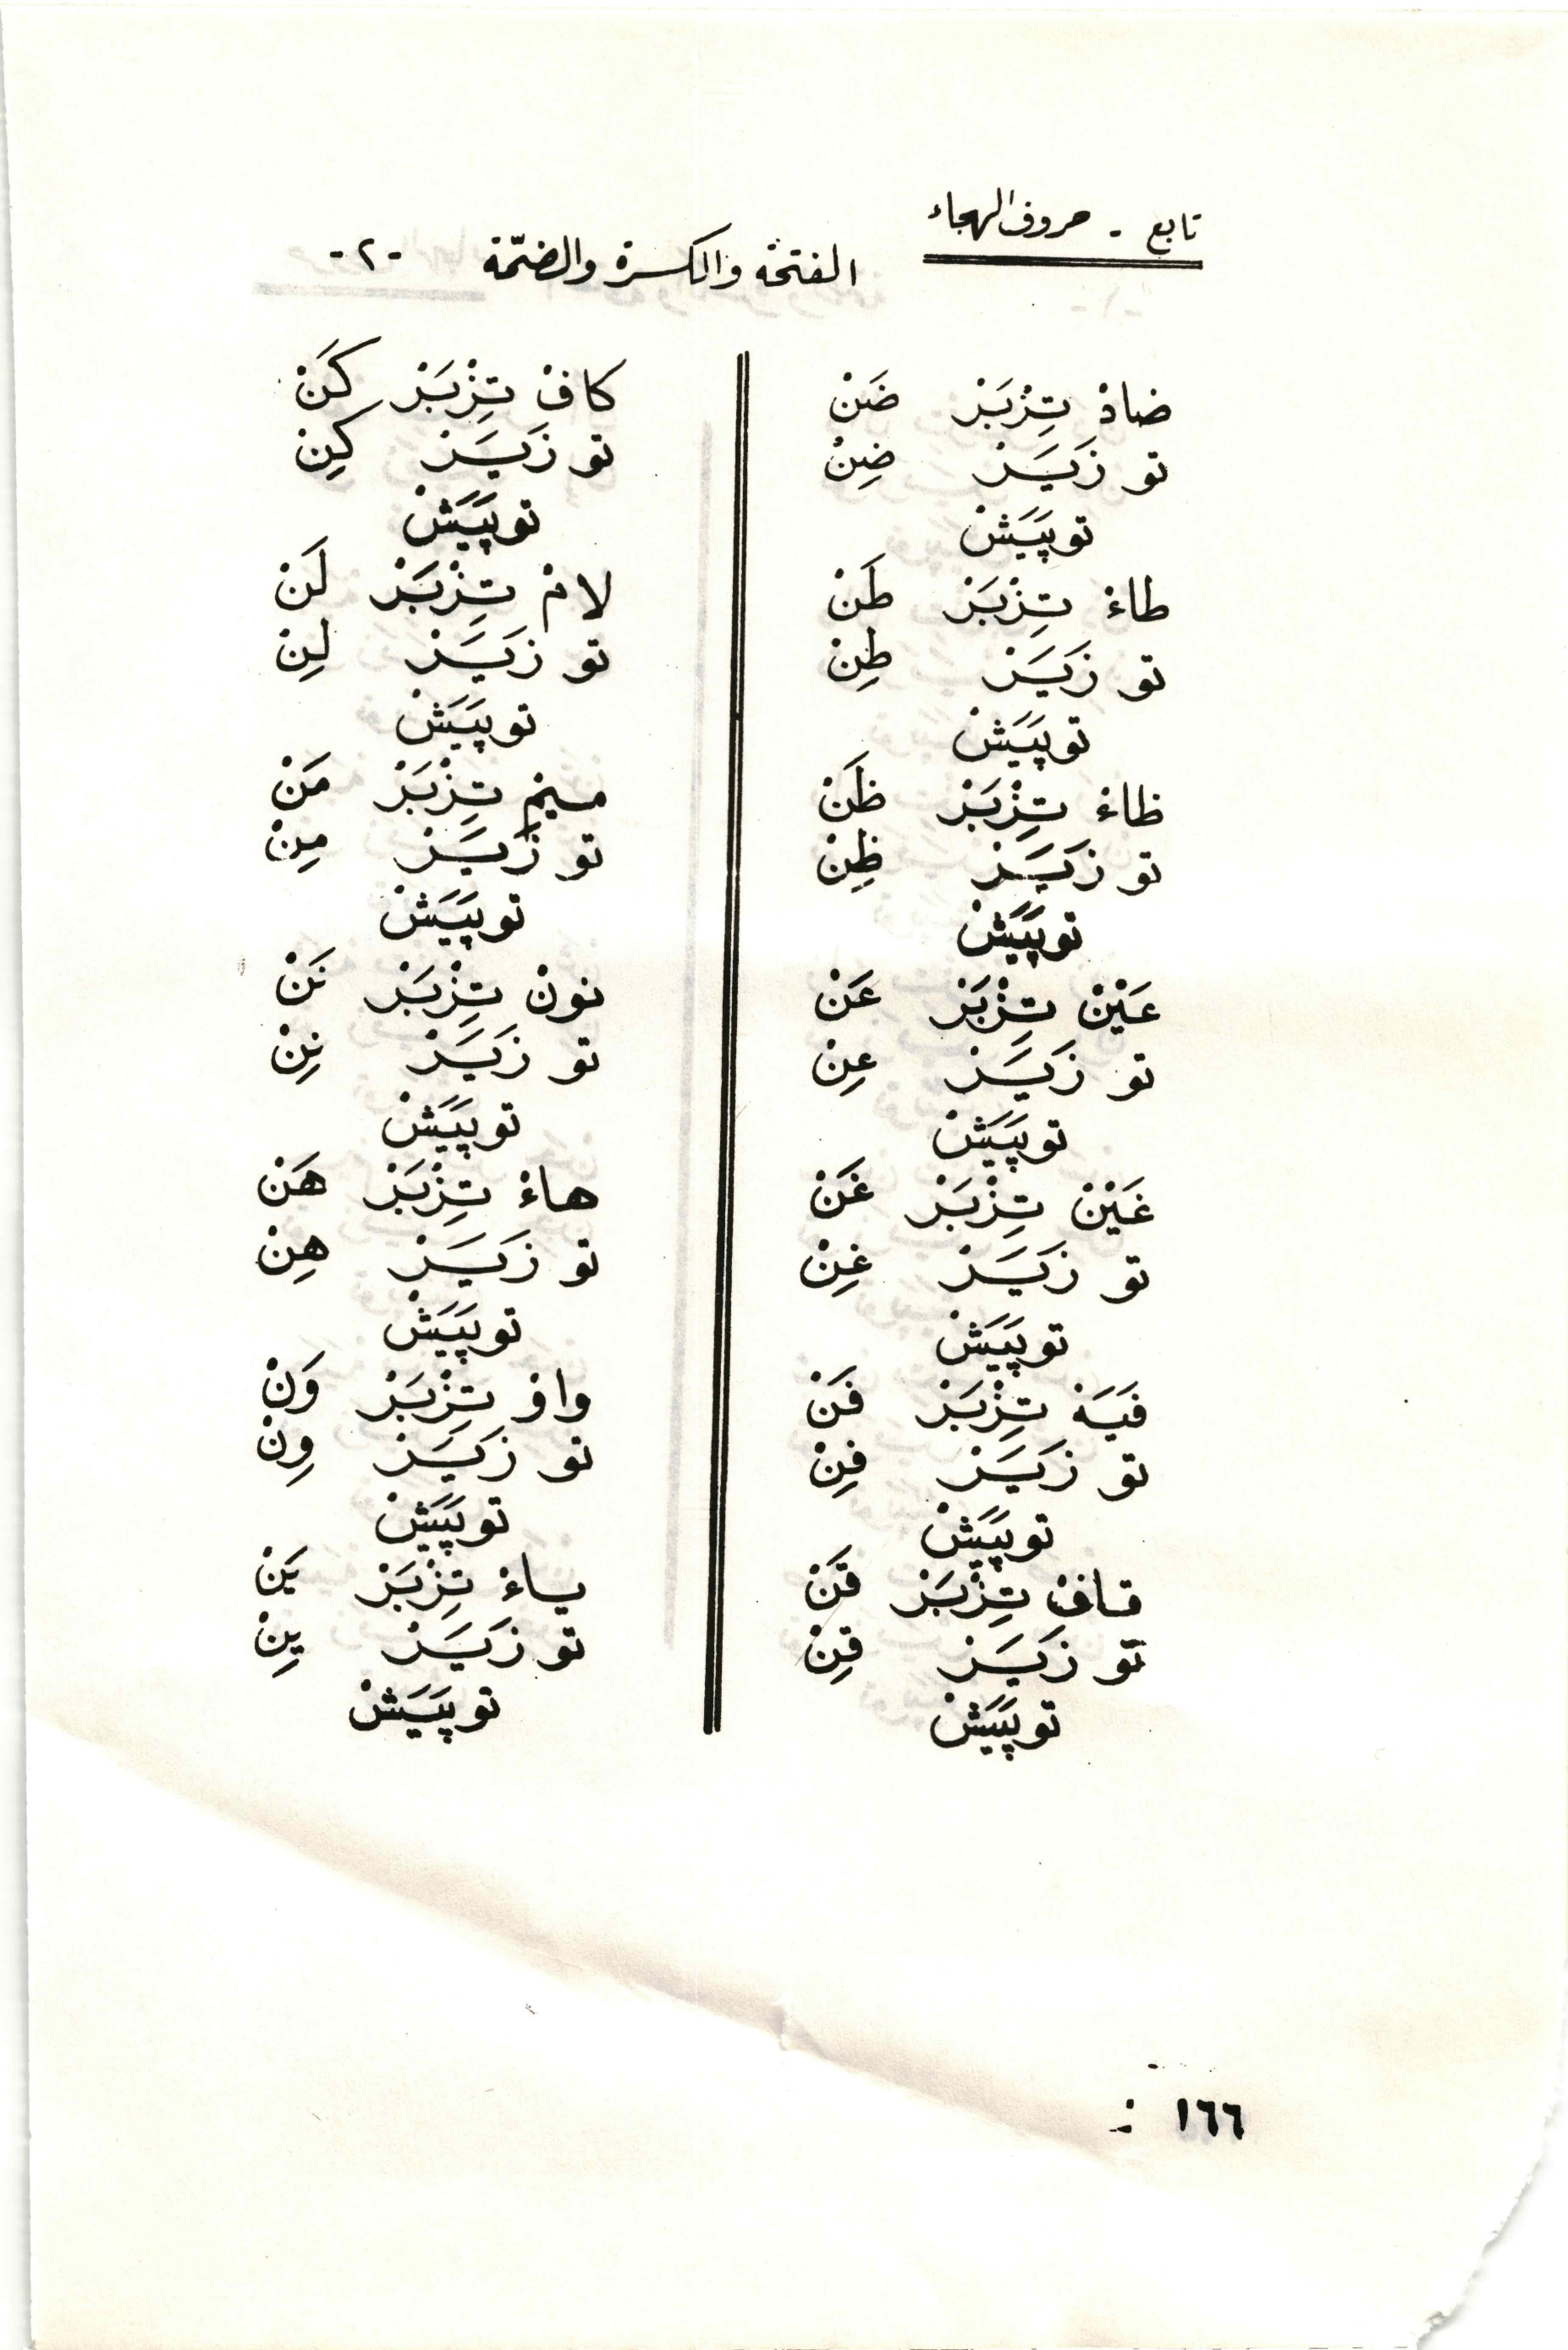 تابع - حروف الهجاء
الفتحة والكسرة والضمّة -٢-
ضادْ تِزْبَرْ ضَنْ
تو زَيَرْ ضِنْ
توپَيَشْ
طاءْ تِزْبَرْ طَنْ
تو زَيَرْ طِنْ
توپَيَشْ
ظاءْ تِزْبَرْ ظَنْ
تو زَيَرْ ظِنْ
توپَيَشْ
عَيْنْ تِزْبَرْ عَنْ
تو زَيَرْ عِنْ
توپَيَشْ
غَيْنْ تِزْبَرْ غَنْ
تو زَيَرْ غِنْ
توپَيَشْ
فَيَهْ تِزْبَرْ فَنْ
تو زَيَرْ فِنْ
توپَيَشْ
قافْ تِزْبَرْ قَنْ
تو زَيَرْ قِنْ
توپَيَشْ
كافْ تِزْبَرْ كَنْ
تو زَيَرْ كِنْ
توپَيَشْ
لامْ تِزْبَرْ لَنْ
تو زَيَرْ لِنْ
توپَيَشْ
ميمْ تِزْبَرْ مَنْ
تو زَيَرْ مِنْ
توپَيَشْ
نونْ تِزْبَرْ نَنْ
تو زَيَرْ نِنْ
توپَيَشْ
هاءْ تِزْبَرْ هَنْ
تو زَيَرْ هِنْ
توپَيَشْ
واوْ تِزْبَرْ وَنْ
تو زَيَرْ وِنْ
توپَيَشْ
ياءْ تِزْبَرْ يَنْ
تو زَيَرْ يِنْ
توپَيَشْ
١٦٦